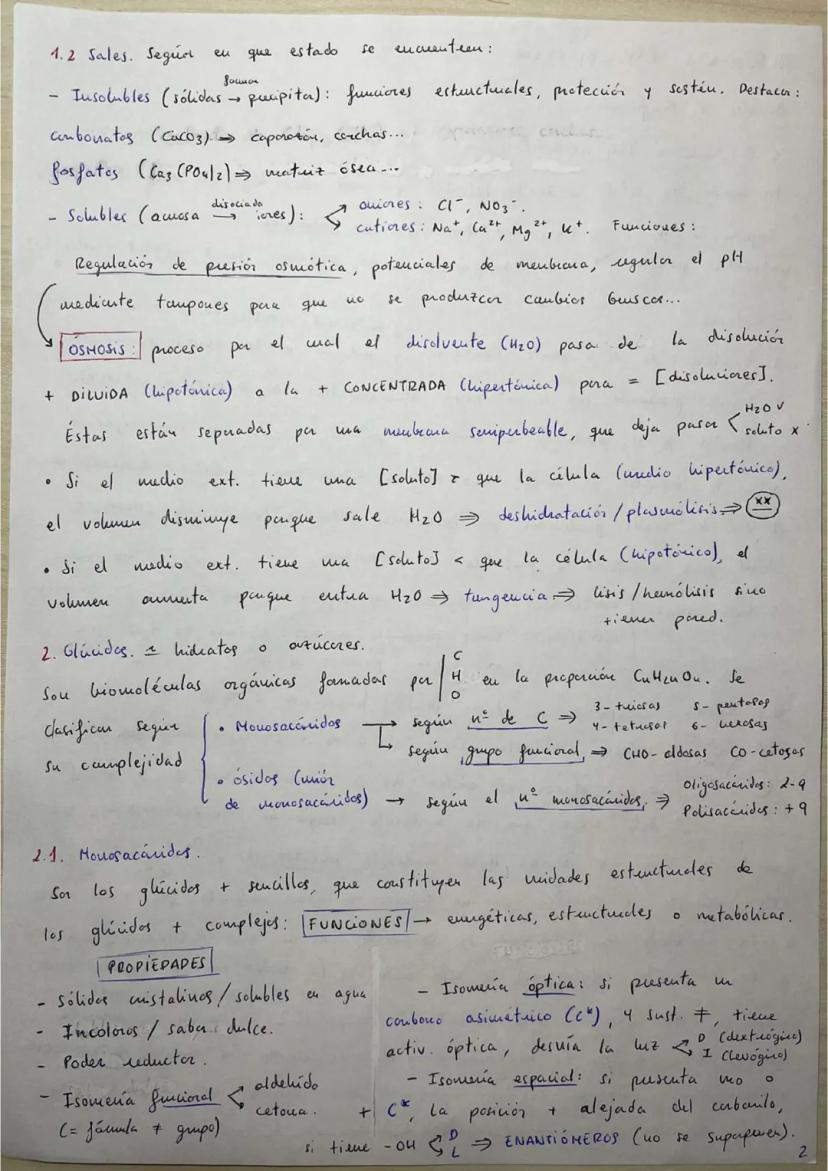 1.2 Sales. Según en que estado se encuentren:
forman
- Insolubles (sólidas → precipitan): funciones estructurales, protección y sostén. Destacan:
carbonatos (CaCO3) ⇒ caparazón, conchas...
fosfatos (Ca3(PO4)2) ⇒ matriz ósea...
disociada
- Solubles (acuosa → iones): aniones: Cl⁻, NO3⁻.
cationes: Na⁺, Ca²⁺, Mg²⁺, K⁺. Funciones:
Regulación de presión osmótica, potenciales de membrana, regular el pH
mediante tampones para que no se produzcan cambios bruscos...
ÓSMOSIS: proceso por el cual el disolvente (H2O) pasa de la disolución
+ DILUIDA (hipotónica) a la + CONCENTRADA (hipertónica) para = [disoluciones].
Éstas están separadas por una membrana semiperbeable, que deja pasar H2O ✓
soluto x
• Si el medio ext. tiene una [soluto] > que la célula (medio hipertónico),
el volumen disminuye porque sale H2O ⇒ deshidratación / plasmólisis ⇒
• Si el medio ext. tiene una [soluto] < que la célula (hipotónico), el
volumen aumenta porque entra H2O ⇒ turgencia ⇒ lisis / hemólisis si no
tienen pared.
2. Glúcidos. ≃ hidratos o azúcares.
Son biomoléculas orgánicas formadas por C H O en la proporción CnH2nOn. Se
clasifican según su complejidad
• Monosacáridos → según nº de C ⇒ 3- triosas 5- pentosas
4- tetrosas 6- hexosas
según grupo funcional ⇒ CHO-aldosas CO-cetosas
• Ósidos (unión de monosacáridos) → según el nº monosacáridos ⇒ Oligosacáridos: 2-9
Polisacáridos: +9
2.1. Monosacáridos.
Son los glúcidos + sencillos, que constituyen las unidades estructurales de
los glúcidos + complejos: FUNCIONES → energéticas, estructurales o metabólicas.
PROPIEDADES
- Sólidos cristalinos / solubles en agua
- Incoloros / sabor dulce.
- Poder reductor.
- Isomería funcional aldehído
cetona.
(= fórmula ≠ grupo)
- Isomería óptica: si presenta un
carbono asimétrico (C*), 4 sust. ≠, tiene
activ. óptica, desvía la luz D (dextrógiro)
I (levógiro)
- Isomería espacial: si presenta uno o
+ C*, la posición + alejada del carbonilo,
si tiene -OH D
L ⇒ ENANTIÓMEROS (no se superponen).
2